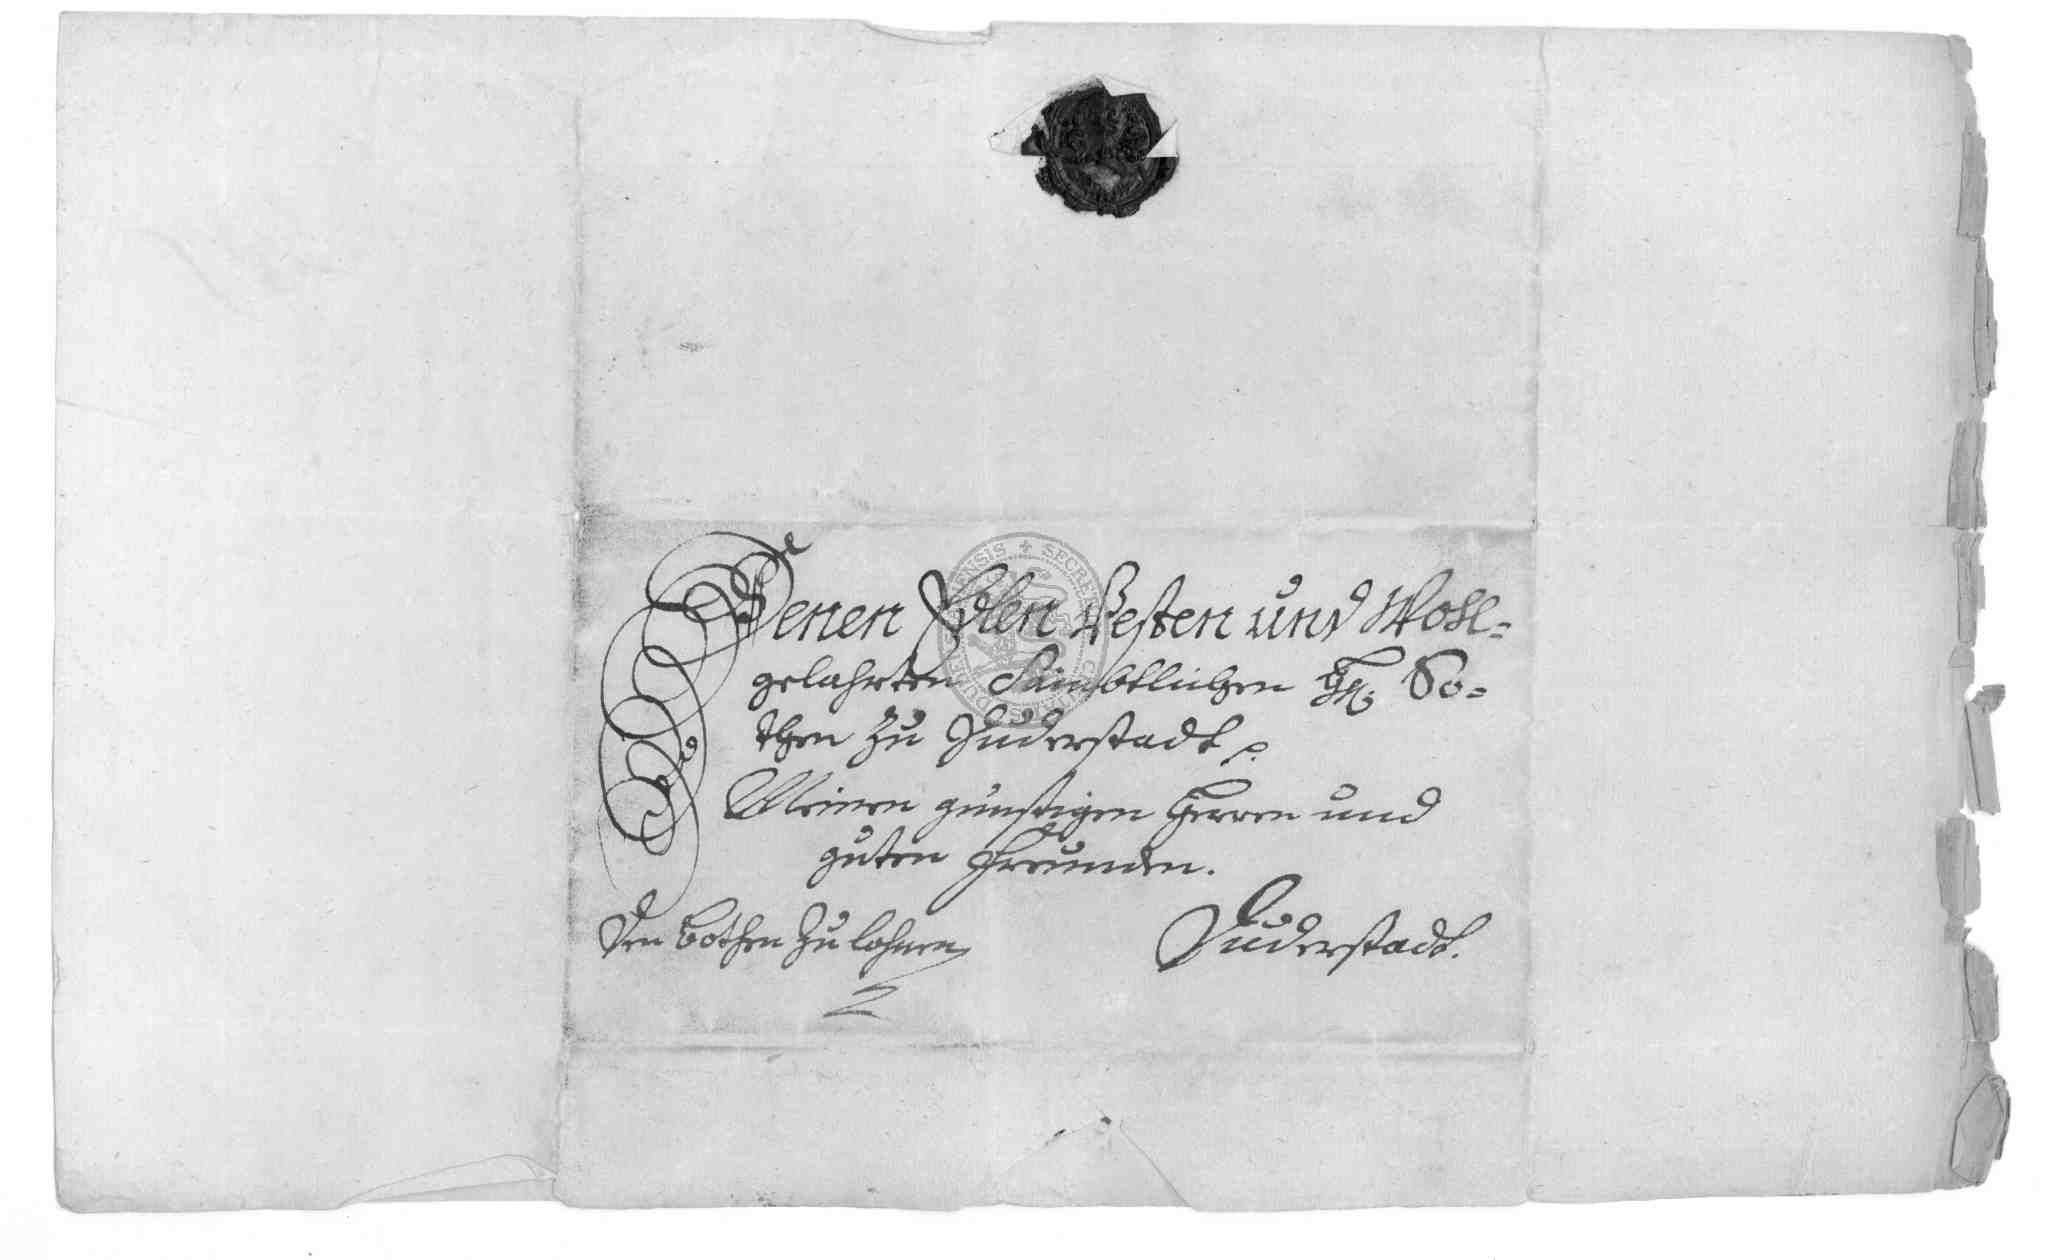 Denen Edlen Vesten und Wohl=
gelahrten Sämbtlichen HH. Bo=
then zu Duderstadt p.
Meinen günstigen Herren und
guten Freunden.
Den bothen zu lohnen
Duderstadt.
2